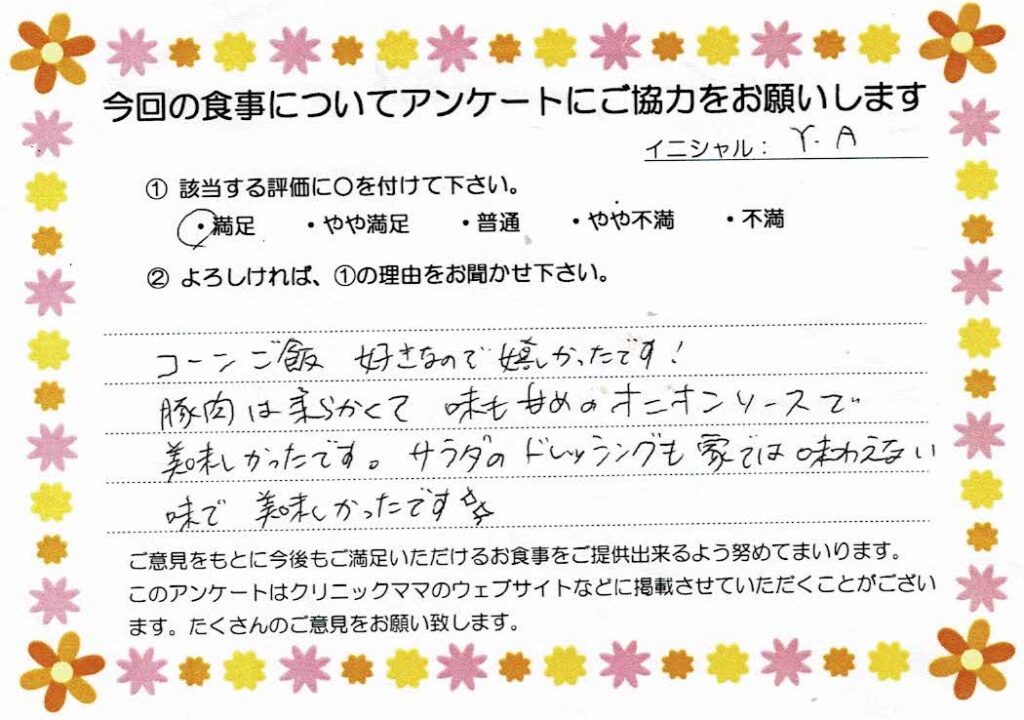 今回の食事についてアンケートにご協力をお願いします
イニシャル： Y. A
① 該当する評価に〇を付けて下さい。
・満足 ・やや満足 ・普通 ・やや不満 ・不満
② よろしければ、①の理由をお聞かせ下さい。
コーンご飯 好きなので嬉しかったです！
豚肉は柔らかくて 味も甘めのオニオンソースで
美味しかったです。サラダのドレッシングも家では味わえない
味で 美味しかったです☆☆
ご意見をもとに今後もご満足いただけるお食事をご提供出来るよう努めてまいります。
このアンケートはクリニックママのウェブサイトなどに掲載させていただくことがござい
ます。たくさんのご意見をお願い致します。